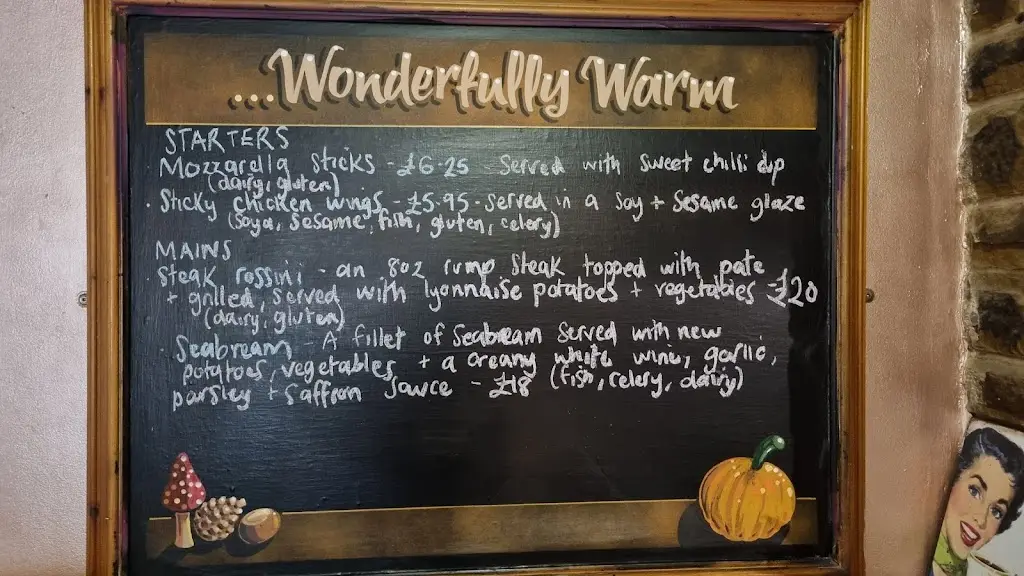 ...Wonderfully Warm
STARTERS
Mozzarella sticks - £6.25 Served with sweet chilli dip
(dairy, gluten)
· Sticky chicken wings - £5.95 - served in a soy + sesame glaze
(Soya, sesame, fish, gluten, celery)
MAINS
Steak rossini - an 8oz rump steak topped with pate
+ grilled, served with lyonnaise potatoes + vegetables - £20
(dairy, gluten)
· Seabream - A fillet of Seabream served with new
potatoes, vegetables + a creamy white wine, garlic,
parsley + saffron sauce - £18 (fish, celery, dairy)